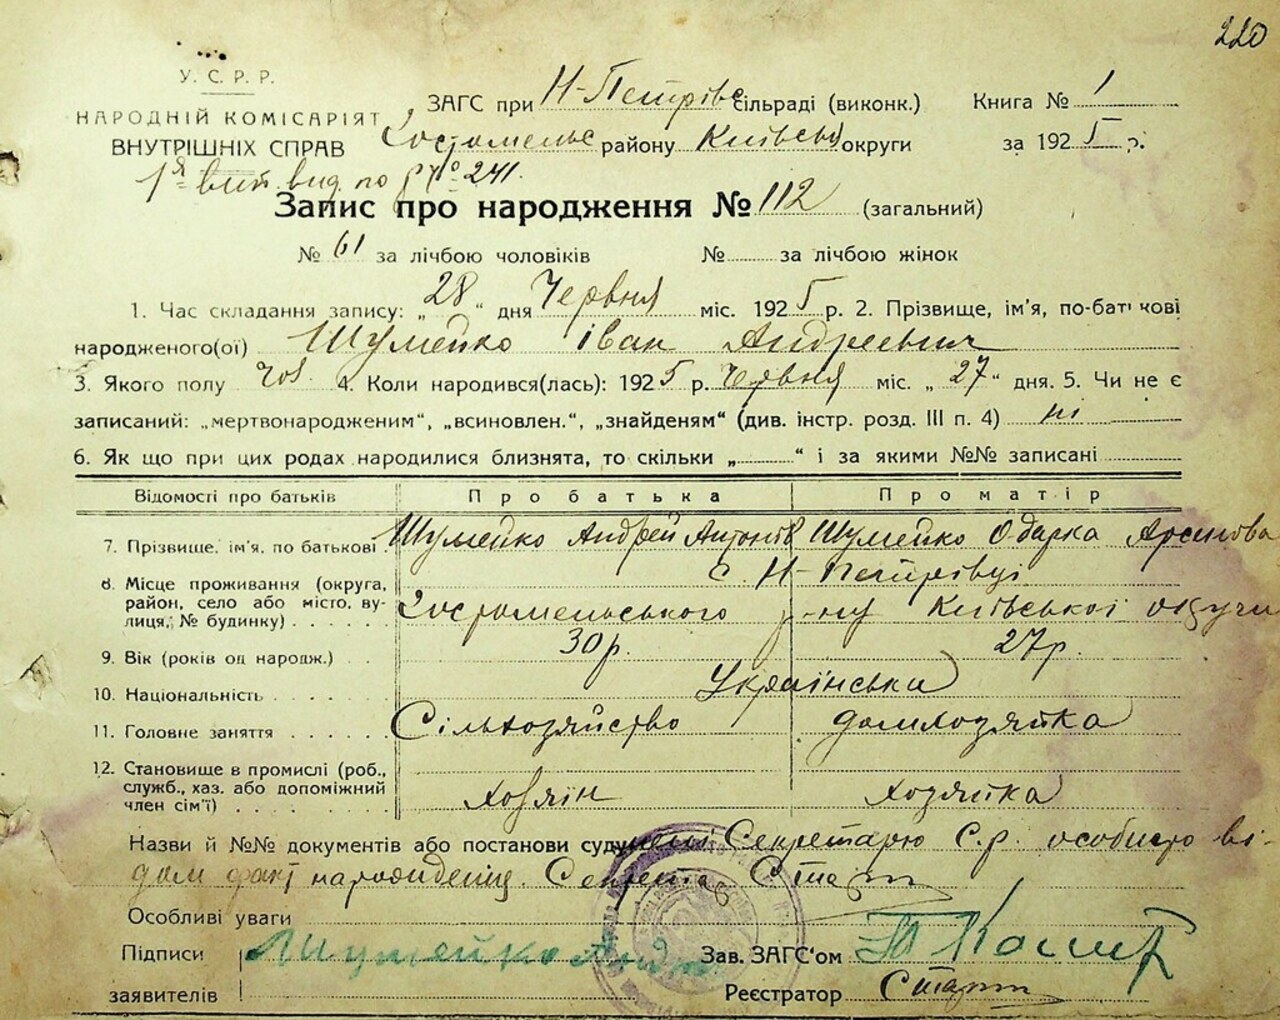 220
У. С. Р. Р.
НАРОДНІЙ КОМІСАРІЯТ
ВНУТРІШНІХ СПРАВ
ЗАГС при Н-Петрівс сільраді (виконк.)
Книга № 1
Гостомельс району Київськ округи
за 1925 р.
1я вид. по № 241.
Запис про народження № 112 (загальний)
№ 61 за лічбою чоловіків № за лічбою жінок
1. Час складання запису: „28“ дня Червня міс. 1925 р. 2. Прізвище, ім'я, по-батькові
народженого(ої) Шумейко Іван Андреевич
3. Якого полу чол. 4. Коли народився(лась): 1925 р. Червня міс. „27“ дня. 5. Чи не є
записаний: „мертвонародженим“, „всиновлен.“, „знайденям“ (див. інстр. розд. III п. 4) ні
6. Як що при цих родах народилися близнята, то скільки „ “ і за якими №№ записані
Відомості про батьків Про батька Про матір
7. Прізвище, ім'я, по батькові Шумейко Андрей Антонів Шумейко Одарка Арсинова
с. Н-Петрівці
8. Місце проживання (округа,
район, село або місто, ву-
лиця, № будинку) Гостомельського р-ну Київської округи
9. Вік (років од народж.) 30 р. 27 р.
10. Національність Українська
11. Головне заняття Сільхозяйство домхозяйка
12. Становище в промислі (роб.,
служб., хаз. або допоміжний
член сім'ї) хозяїн хозяйка
Назви й №№ документів або постанови суду Секретарю С.р. особисто ві-
дом факт народження. Секретар
Особливі уваги
Підписи Шумейко Андр
Зав. ЗАГС'ом
заявителів
Реєстратор